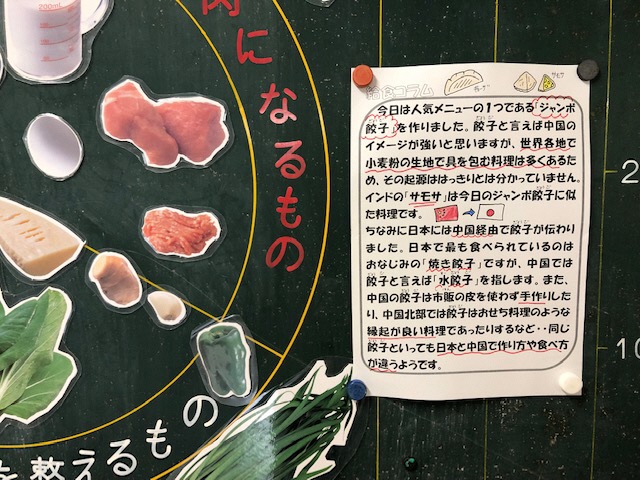 200mL
肉になるもの
を整えるもの
給食コラム
サモサ
今日は人気メニューの1つである「ジャンボ
餃子」を作りました。餃子と言えば中国の
イメージが強いと思いますが、世界各地で
小麦粉の生地で具を包む料理は多くあるた
め、その起源ははっきりとは分かっていません。
インドの「サモサ」は今日のジャンボ餃子に似
た料理です。
ちなみに日本には中国経由で餃子が伝わり
ました。日本で最も食べられているのは
おなじみの「焼き餃子」ですが、中国では
餃子と言えば「水餃子」を指します。また、
中国の餃子は市販の皮を使わず手作りした
り、中国北部では餃子はおせち料理のような
縁起が良い料理であったりするなど‥同じ
餃子といっても日本と中国で作り方や食べ方
が違うようです。
2
10